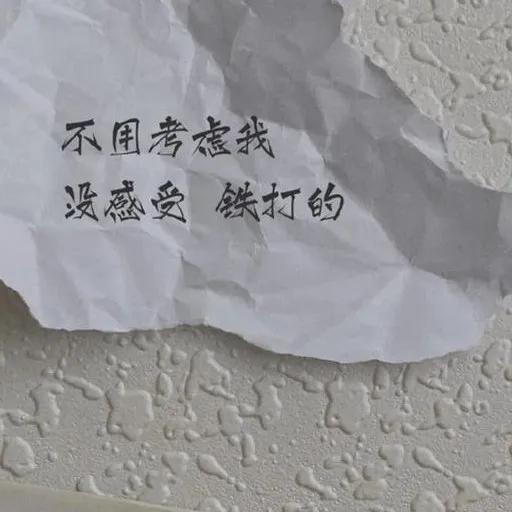 不用考虑我
没感受 铁打的